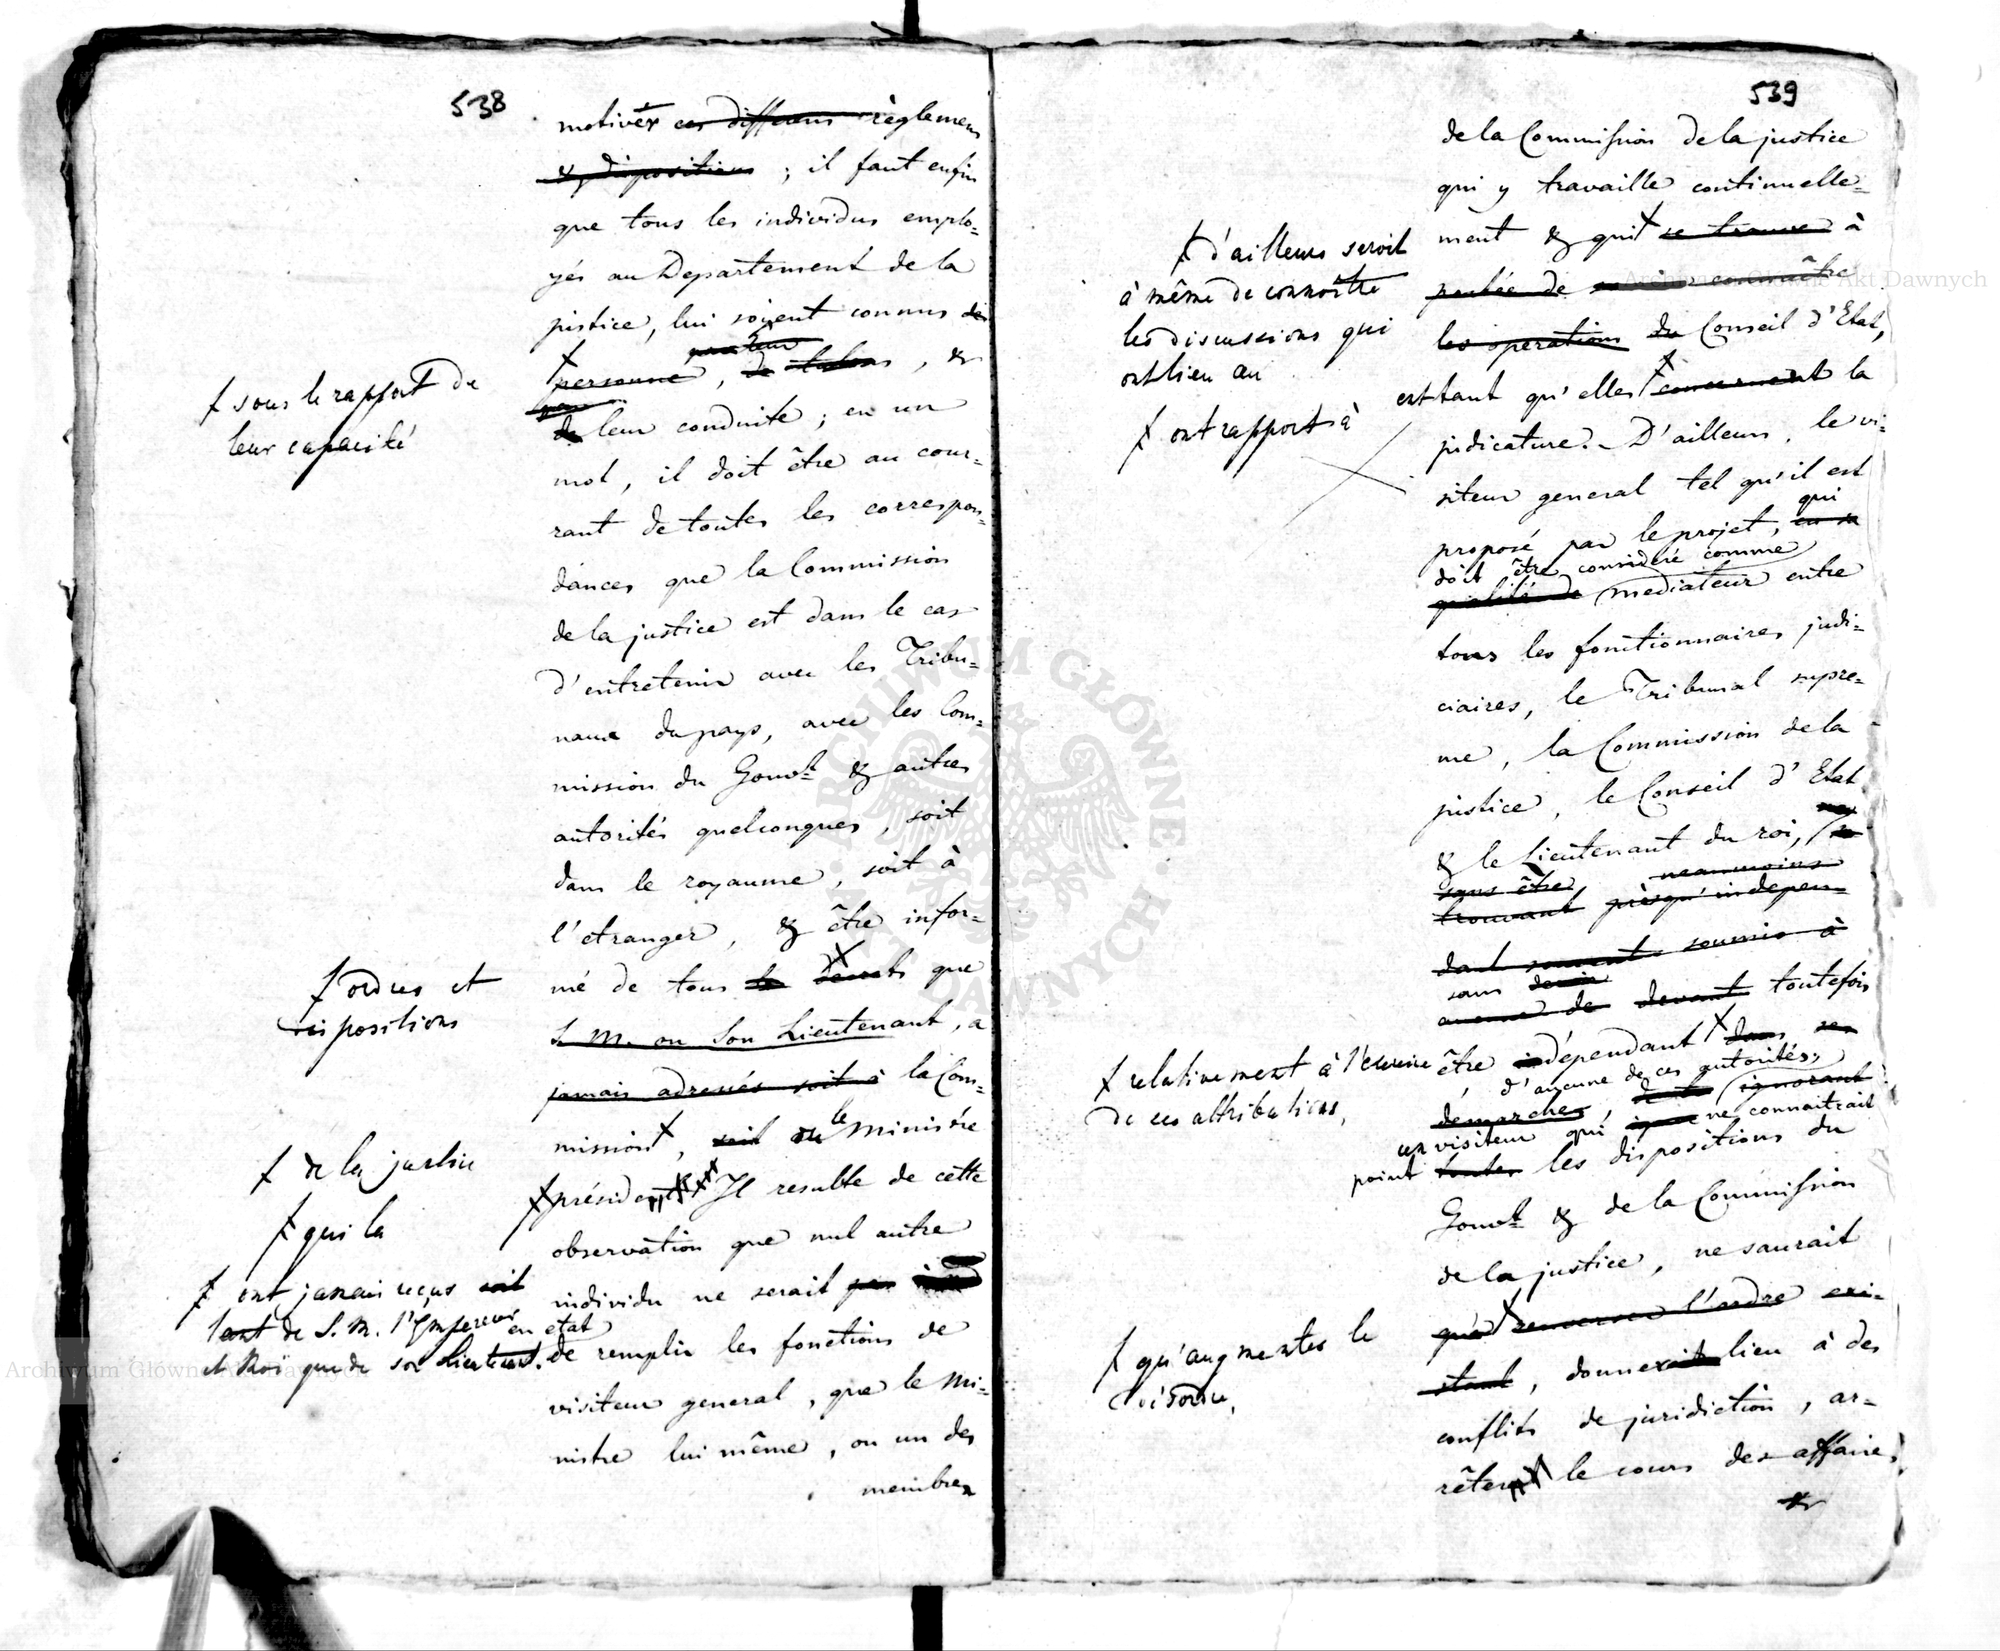 538
motiver ces differens règlemens
& dispositions ; il faut enfin
que tous les individus emplo=
yés au Departement de la
justice, lui soyent connus de
personne, de talens, &
de leur conduite ; en un
mot, il doit être au cour=
rant de toutes les correspon=
dances que la Commission
de la justice est dans le cas
d'entretenir avec les Tribu=
naux du pays, avec les Com=
mission du Gouvt & autres
autorités quelconques, soit
dans le royaume, soit à
l'etranger, & être infor=
mé de tous les decrets que
S. M. ou Son Lieutenant, a
jamais adressés soit à la Com=
mission, soit au le Ministre
président Il resulte de cette
observation que nul autre
individu ne serait
en etat
de remplir les fonctions de
visiteur general, que le Mi=
nistre lui même, ou un des
membres
sous le rapport de
leur capacité
ordres et
dispositions
de la justice
qui la
ont jamais reçus soit
tant de S. M. l'Empereur
et Roi que de son Lieutenant.
539
de la Commission de la justice
qui y travaille continuelle=
ment & qui se trouve à
portée de connaître
les operations du Conseil d'Etat,
en tant qu'elles concernent la
judicature. D'ailleurs, le vi=
siteur general tel qu'il est
proposé par le projet, en sa
qui
doit être consideré comme
qualité de mediateur entre
tous les fonctionnaires judi=
ciaires, le Tribunal supre=
me, la Commission de la
justice, le Conseil d'Etat
& le Lieutenant du roi, se
sans être neanmoins
trouvant presqu'indepen=
dant soumis à
sans devoir
aucune de devant toutefois
être indépendant dans ses
d'aucune de ces autorités,
demarches, ignorant
un visiteur qui ne connaitrait
point toutes les dispositions du
Gouvt & de la Commission
de la justice, ne saurait
que renverser l'ordre exi=
stant, donnerait lieu à des
conflits de juridiction, ar=
rêter le cours des affaires
&
d'ailleurs seroit
à même de connoître
les discussions qui
ont lieu au
ont rapport à
relativement à l'exercice
de ces attributions,
qu'augmenter le
désordre,